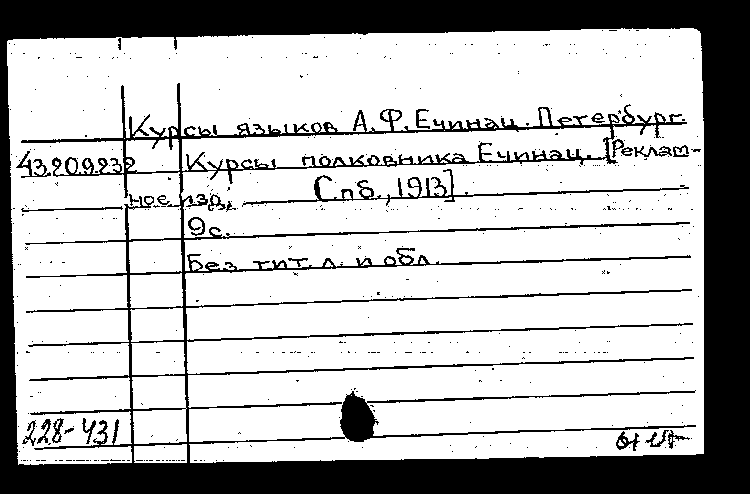 Курсы языков А. Ф. Ечинац. Петербург.
43.20.9.232 Курсы полковника Ечинац. [Реклам-
ное изд., Спб., 1913].
9с.
Без тит. л. и обл.
228-431